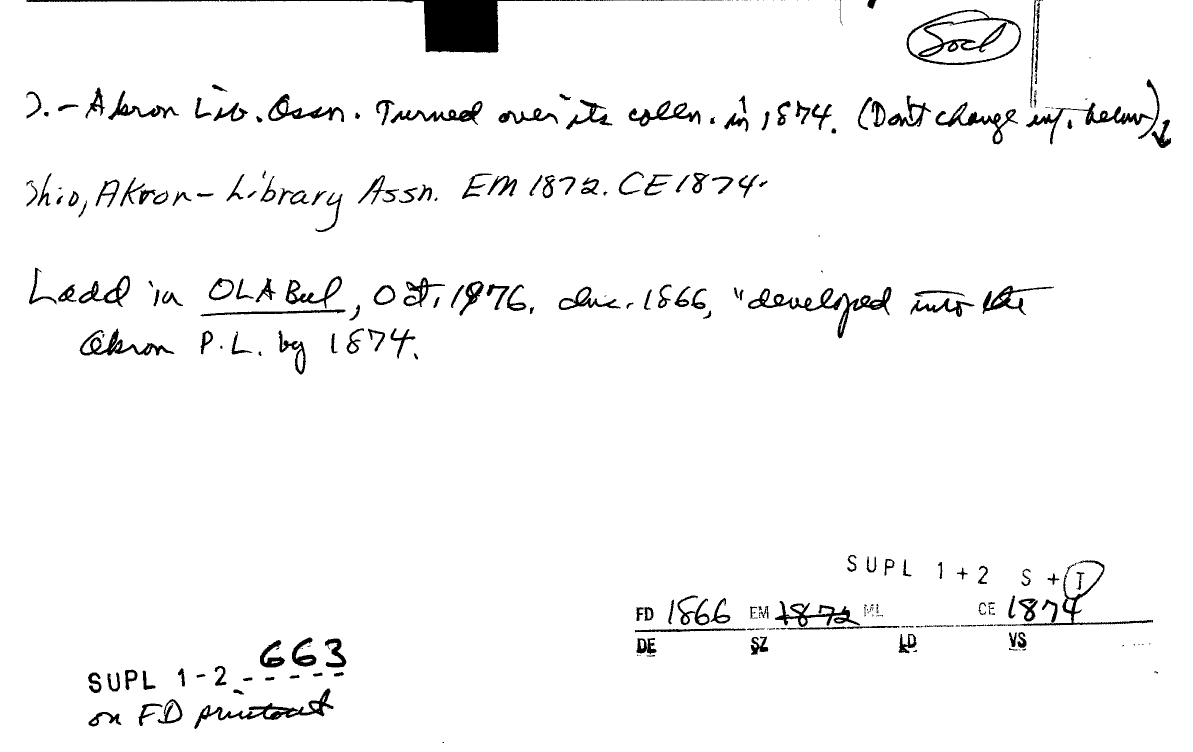 Socl
O.-Akron Lib. Assn. Turned over its colln. in 1874. (Don't change inf. below)↓
Ohio, Akron-Library Assn. EM 1872. CE 1874.
Ladd in OLA Bul, Oct. 1976. inc. 1866, "developed into the
Akron P.L. by 1874.
SUPL 1+2 S+I
FD 1866 EM 1872 ML CE 1874
DE SZ LD VS
SUPL 1-2 663
on FD printout